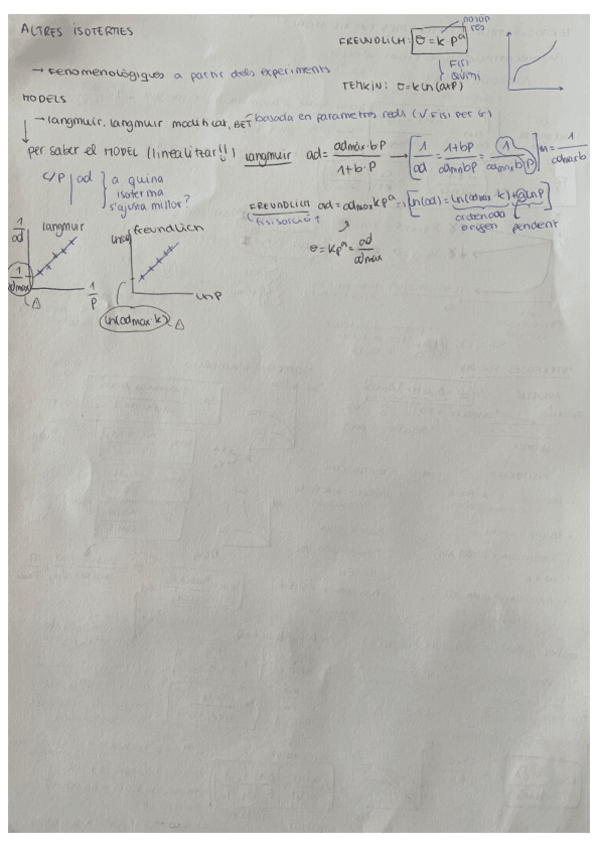 ALTRES ISOTERMES
FREUNDLICH: θ = k P^a
FISI
QUIMI
→ Fenomenològiques a partir dels experiments
TEMKIN: θ = k ln(a×P)
MODELS
→ langmuir, langmuir modificat, BET basada en parametres reals (√ FISI per G)
per saber el MODEL (linealitzar!!) langmuir ad = admàx·bP / 1+b·P → [1/ad = 1+bP / admbP = 1 / admbP m = 1 / admax b
C/P | ad } a quina isoterma s'ajusta millor?
FREUNDLICH (fisisorció) ad = admax kP^a ⇒ [ln(ad) = ln(admax·k) + a ln P]
ordenada origen pendent
θ = kP^a = ad / admax
1/ad langmuir
1/admax
1/P
ln(ad) freundlich
ln P
ln(admax·k)